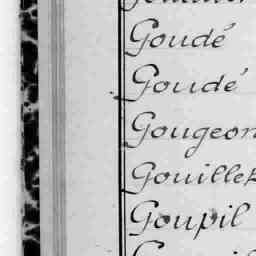 Goudé
Goudé
Gougeon
Gouillet
Goupil